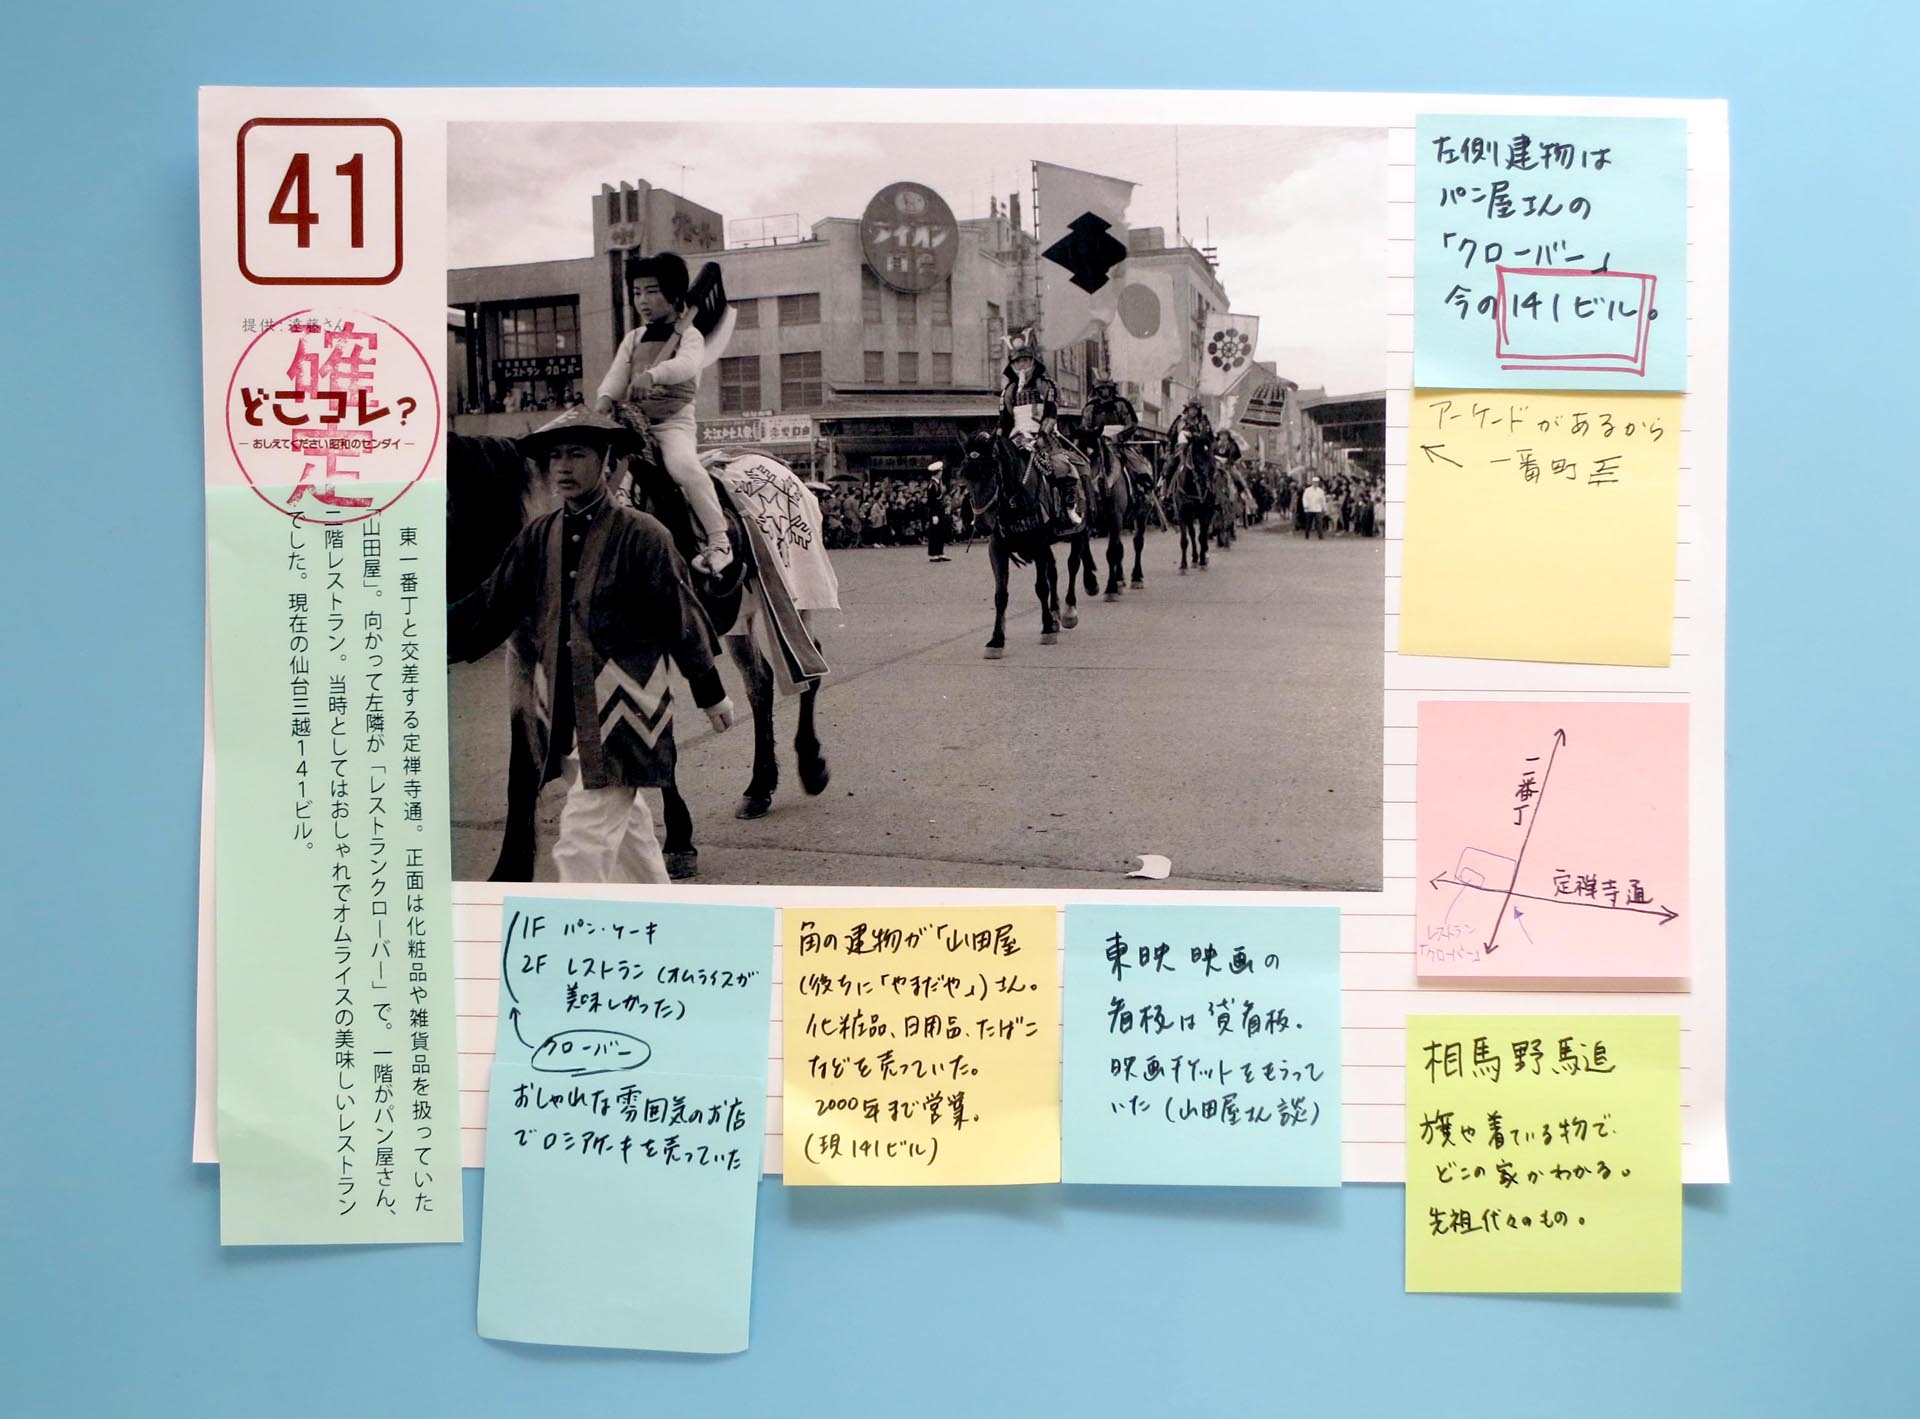 41
提供：遠藤さん
確定
どこコレ？
― おしえてください昭和のセンダイ ―
東一番丁と交差する定禅寺通。正面は化粧品や雑貨品を扱っていた
「山田屋」。向かって左隣が「レストランクローバー」で。一階がパン屋さん、
二階レストラン。当時としてはおしゃれでオムライスの美味しいレストラン
でした。現在の仙台三越141ビル。
ライオン
レストラン クローバー
左側建物は
パン屋さんの
「クローバー」
今の141ビル。
アーケードがあるから
一番町
一番丁
定禅寺通
レストラン
「クローバー」
相馬野馬追
旗や着ている物で、
どこの家かわかる。
先祖代々のもの。
1F パン・ケーキ
2F レストラン（オムライスが
美味しかった）
クローバー
おしゃれな雰囲気のお店
でロシアケーキを売っていた
角の建物が「山田屋
（後ちに「やまだや」）さん。
化粧品、日用品、たばこ
などを売っていた。
2000年まで営業。
（現141ビル）
東映映画の
看板は貸看板。
映画チケットをもらって
いた（山田屋さん談）